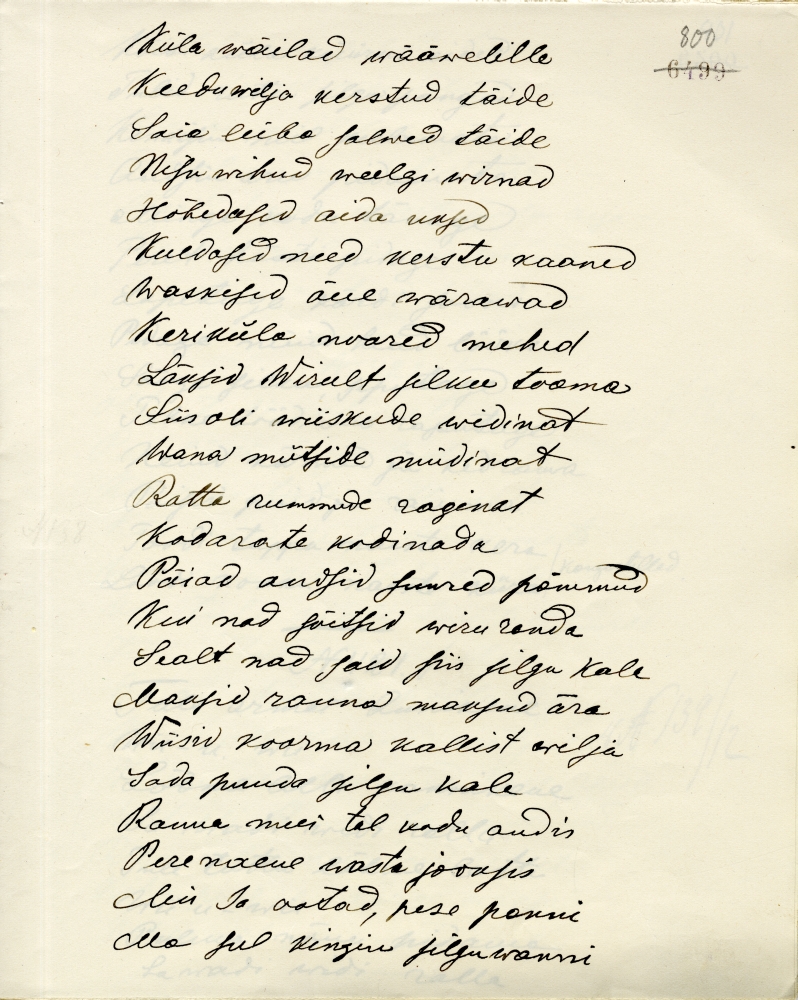 800
6499
Küla wäilad wääwelille
Keeduwilja kerstud täide
Saia leiba salwed täide
Nisu wihud weelgi wirnad
Hõbedased aida uksed
Kuldased need kerstu kaaned
Waskised õue wärawad
Keriküla noared mehed
Läksid Wirult silku tooma
Siis oli wiiskude widinat
Wana mütside müdinat
Ratta rummude raginat
Kodarate kodinada
Päiad andsid suured pömmud
Kui nad sõitsid wiru randa
Sealt nad said siis silgu kala
Maksid ranna maksud ära
Wiisid koorma kallist wilja
Sada puuda silgu kala
Ranna mees tal kodu andis
Perenaene wasta jooksis
Mis sa ootad, pese panni
Ma sul kingin silguwanni